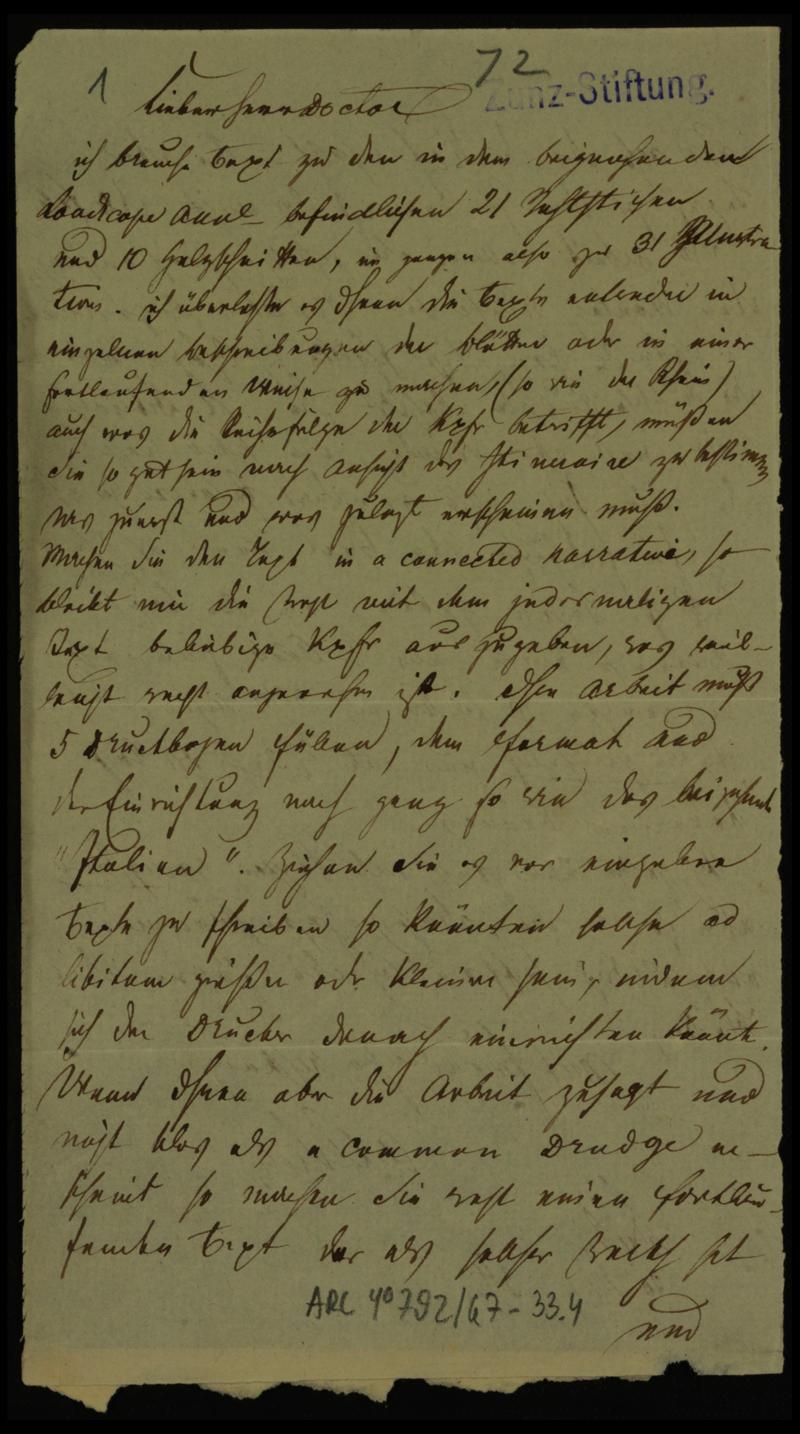 1
72
Zunz-Stiftung.
Lieber Herr Doctor
ich brauche Text zu den in dem beigehenden
Landscape Annl befindlichen 21 Stahlstichen
und 10 Holzschnitten, im ganzen also zu 31 Illustra
tions. ich überlasse es Ihnen die Texte entweder in
einzelnen Beschreibungen der Blätter oder in einer
fortlaufenden Weise zu machen, (so wie der Rhein)
auch was die Reihefolge der Kpfr betrifft, müßen
Sie so gut sein nach Ansicht des Itineraire zu bestimm
was zuerst und was zuletzt erscheinen muß.
Machen Sie den Text in a connected narrative, so
bleibt mir die Wahl mit dem jedesmaligen
Text beliebige Kpfr auszugeben, was viel-
leicht recht angenehm ist. Ihre Arbeit muß
5 Druckbogen füllen, dem Format und
der Einrichtung nach ganz so wie das beigehende
"Italien". Ziehen Sie es vor einzelne
Texte zu schreiben so könnten solche ad
libitum größer oder kleiner sein, indem
sich der Drucker danach einrichten könnt.
Wenn Ihnen aber die Arbeit zusagt und
nicht blos als a common Drudge er-
scheint so machen Sie recht einen fortlau-
fenden Text der als solcher Werth hat
und
ARC 4° 792/G7-33.4